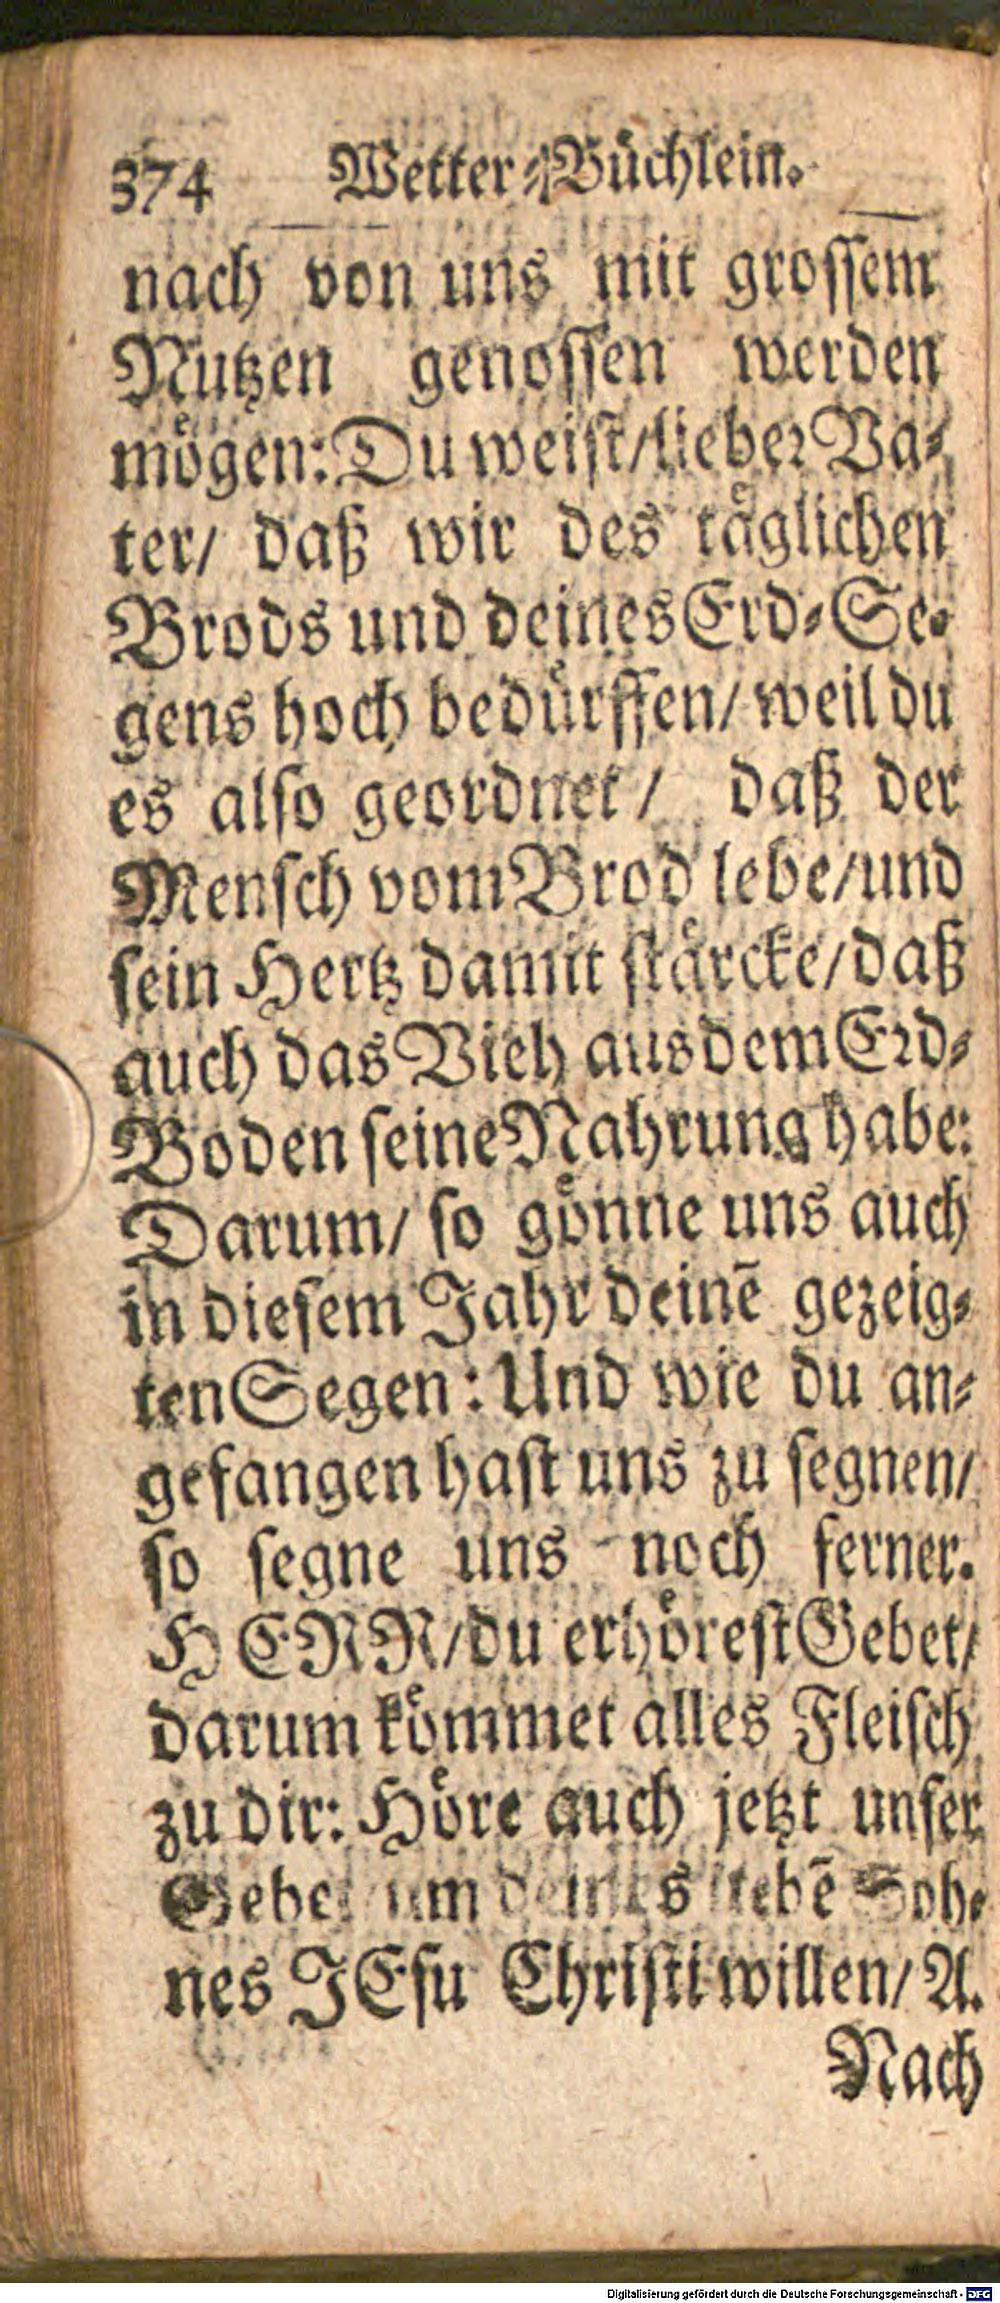 374 Wetter-Büchlein.
nach von uns mit grossem
Nutzen genossen werden
mögen: Du weist/ lieber Va-
ter/ daß wir des täglichen
Brods und deines Erd-Se-
gens hoch bedürffen/ weil du
es also geordnet/ daß der
Mensch vom Brod lebe/ und
sein Hertz damit stärcke/ daß
auch das Vieh aus dem Erd-
Boden seine Nahrung habe:
Darum/ so gönne uns auch
in diesem Jahr deinē gezeig-
ten Segen: Und wie du an-
gefangen hast uns zu segnen/
so segne uns noch ferner.
HERR/ du erhörest Gebet/
darum kömmet alles Fleisch
zu dir: Höre auch jetzt unser
Gebet um deines liebē Soh-
nes JEsu Christi willen/ A.
Nach
Digitalisierung gefördert durch die Deutsche Forschungsgemeinschaft - DFG